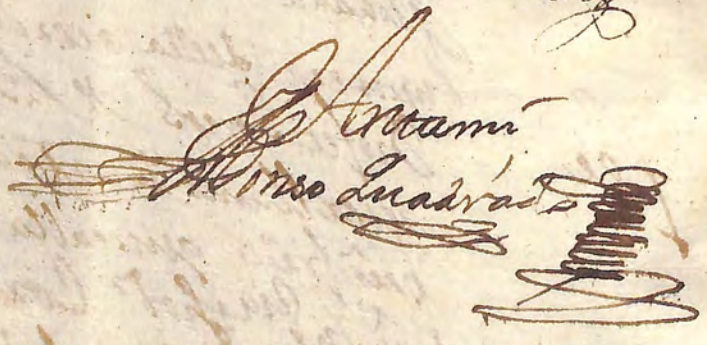 Antami
Alonso Quadrado